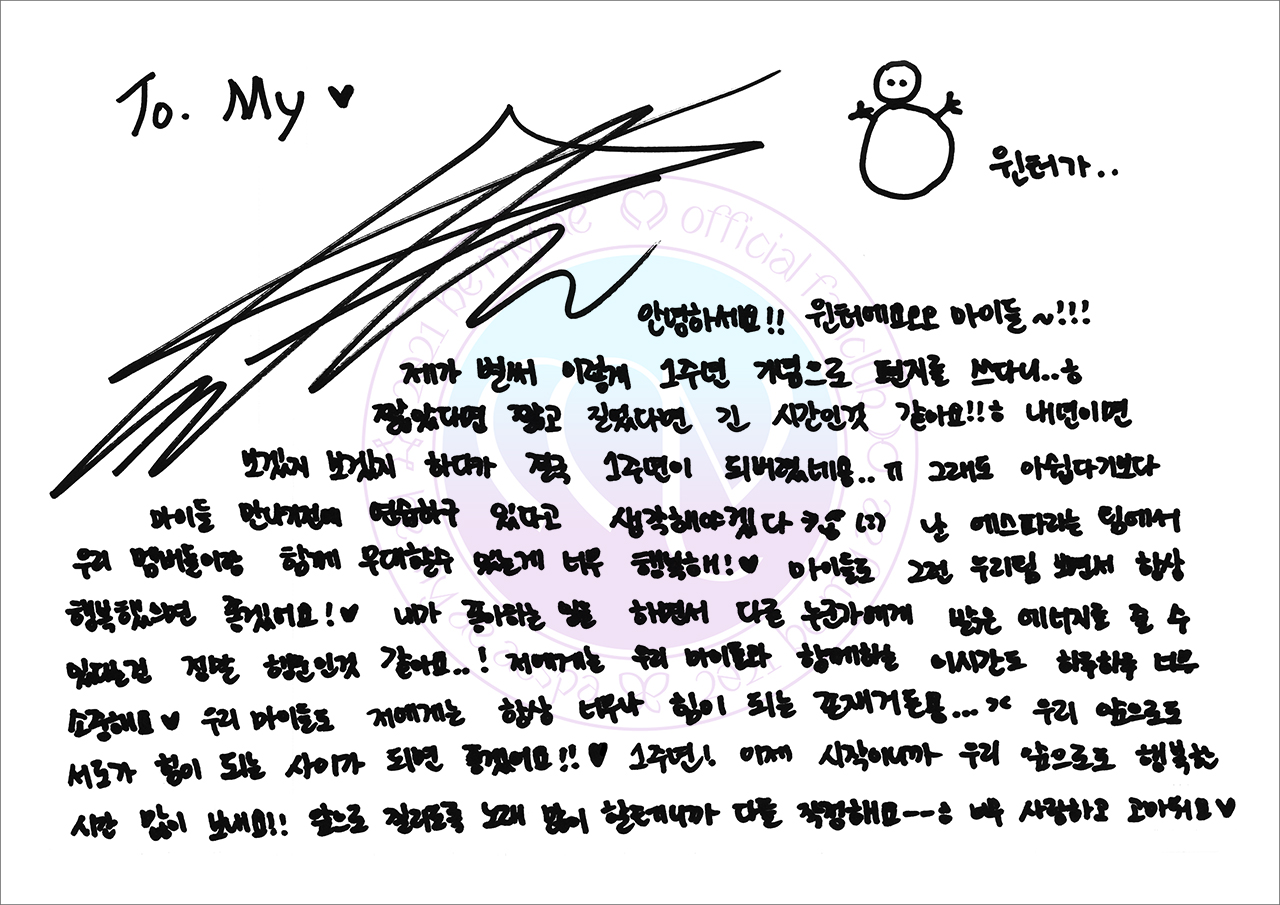 To. My ♥
윈터가..
안녕하세요!! 윈터예요오오 마이들~!!!
제가 벌써 이렇게 1주년 기념으로 편지를 쓰다니..ㅎ
짧았다면 짧고 길었다면 긴 시간인것 같아요!!ㅎ 내년이면
보겠지 보겠지 하다가 결국 1주년이 되버렸네용..ㅠ 그래도 아쉽다기보다
마이들 만나기전에 연습하구 있다고 생각해야겠다 난 에스파라는 팀에서
우리 멤버들이랑 함께 무대할수 있는게 너무 행복해!♥ 마이들도 그런 우리팀 보면서 항상
행복했으면 좋겠어요!♥ 내가 좋아하는 일을 하면서 다른 누군가에게 밝은 에너지를 줄 수
있다는건 정말 행운인것 같아요..! 저에게는 우리 마이들과 함께하는 이시간도 하루하루 너무
소중해요♥ 우리 마이들도 저에게는 항상 너무나 힘이 되는 존재거든용...ㅈㅈ 우리 앞으로도
서로가 힘이 되는 사이가 되면 좋겠어요!!♥ 1주년! 이제 시작이니까 우리 앞으로도 행복한
시간 많이 보내요!! 앞으로 질리도록 노래 많이 할테니까 다들 걱정해요--ㅎ 매우 사랑하고 고마워요♥
official fanclub